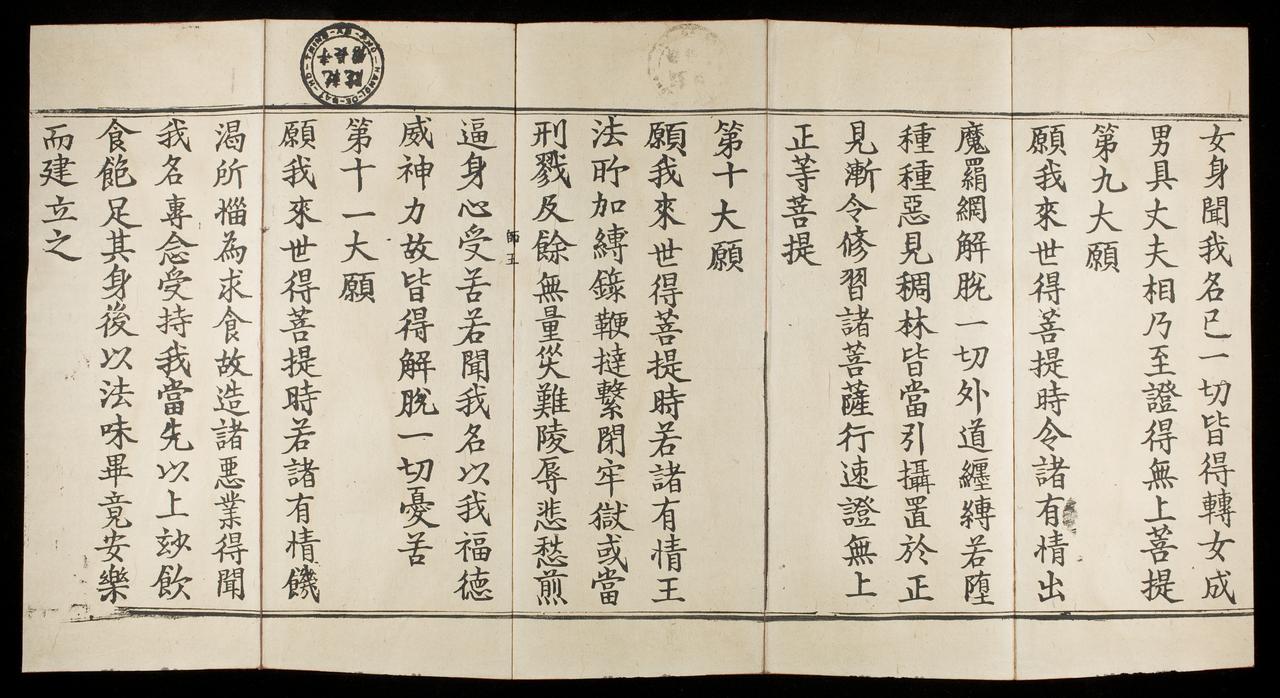 女身聞我名已一切皆得轉女成
男具丈夫相乃至證得無上菩提
第九大願
願我來世得菩提時令諸有情出
魔羂網解脫一切外道纏縛若墮
種種惡見稠林皆當引攝置於正
見漸令修習諸菩薩行速證無上
正等菩提
第十大願
願我來世得菩提時若諸有情王
法所加縛錄鞭撻繫閉牢獄或當
刑戮及餘無量災難陵辱悲愁煎
師王
逼身心受苦若聞我名以我福德
威神力故皆得解脫一切憂苦
第十一大願
願我來世得菩提時若諸有情饑
渴所惱為求食故造諸惡業得聞
我名專念受持我當先以上玅飲
食飽足其身後以法味畢竟安樂
而建立之